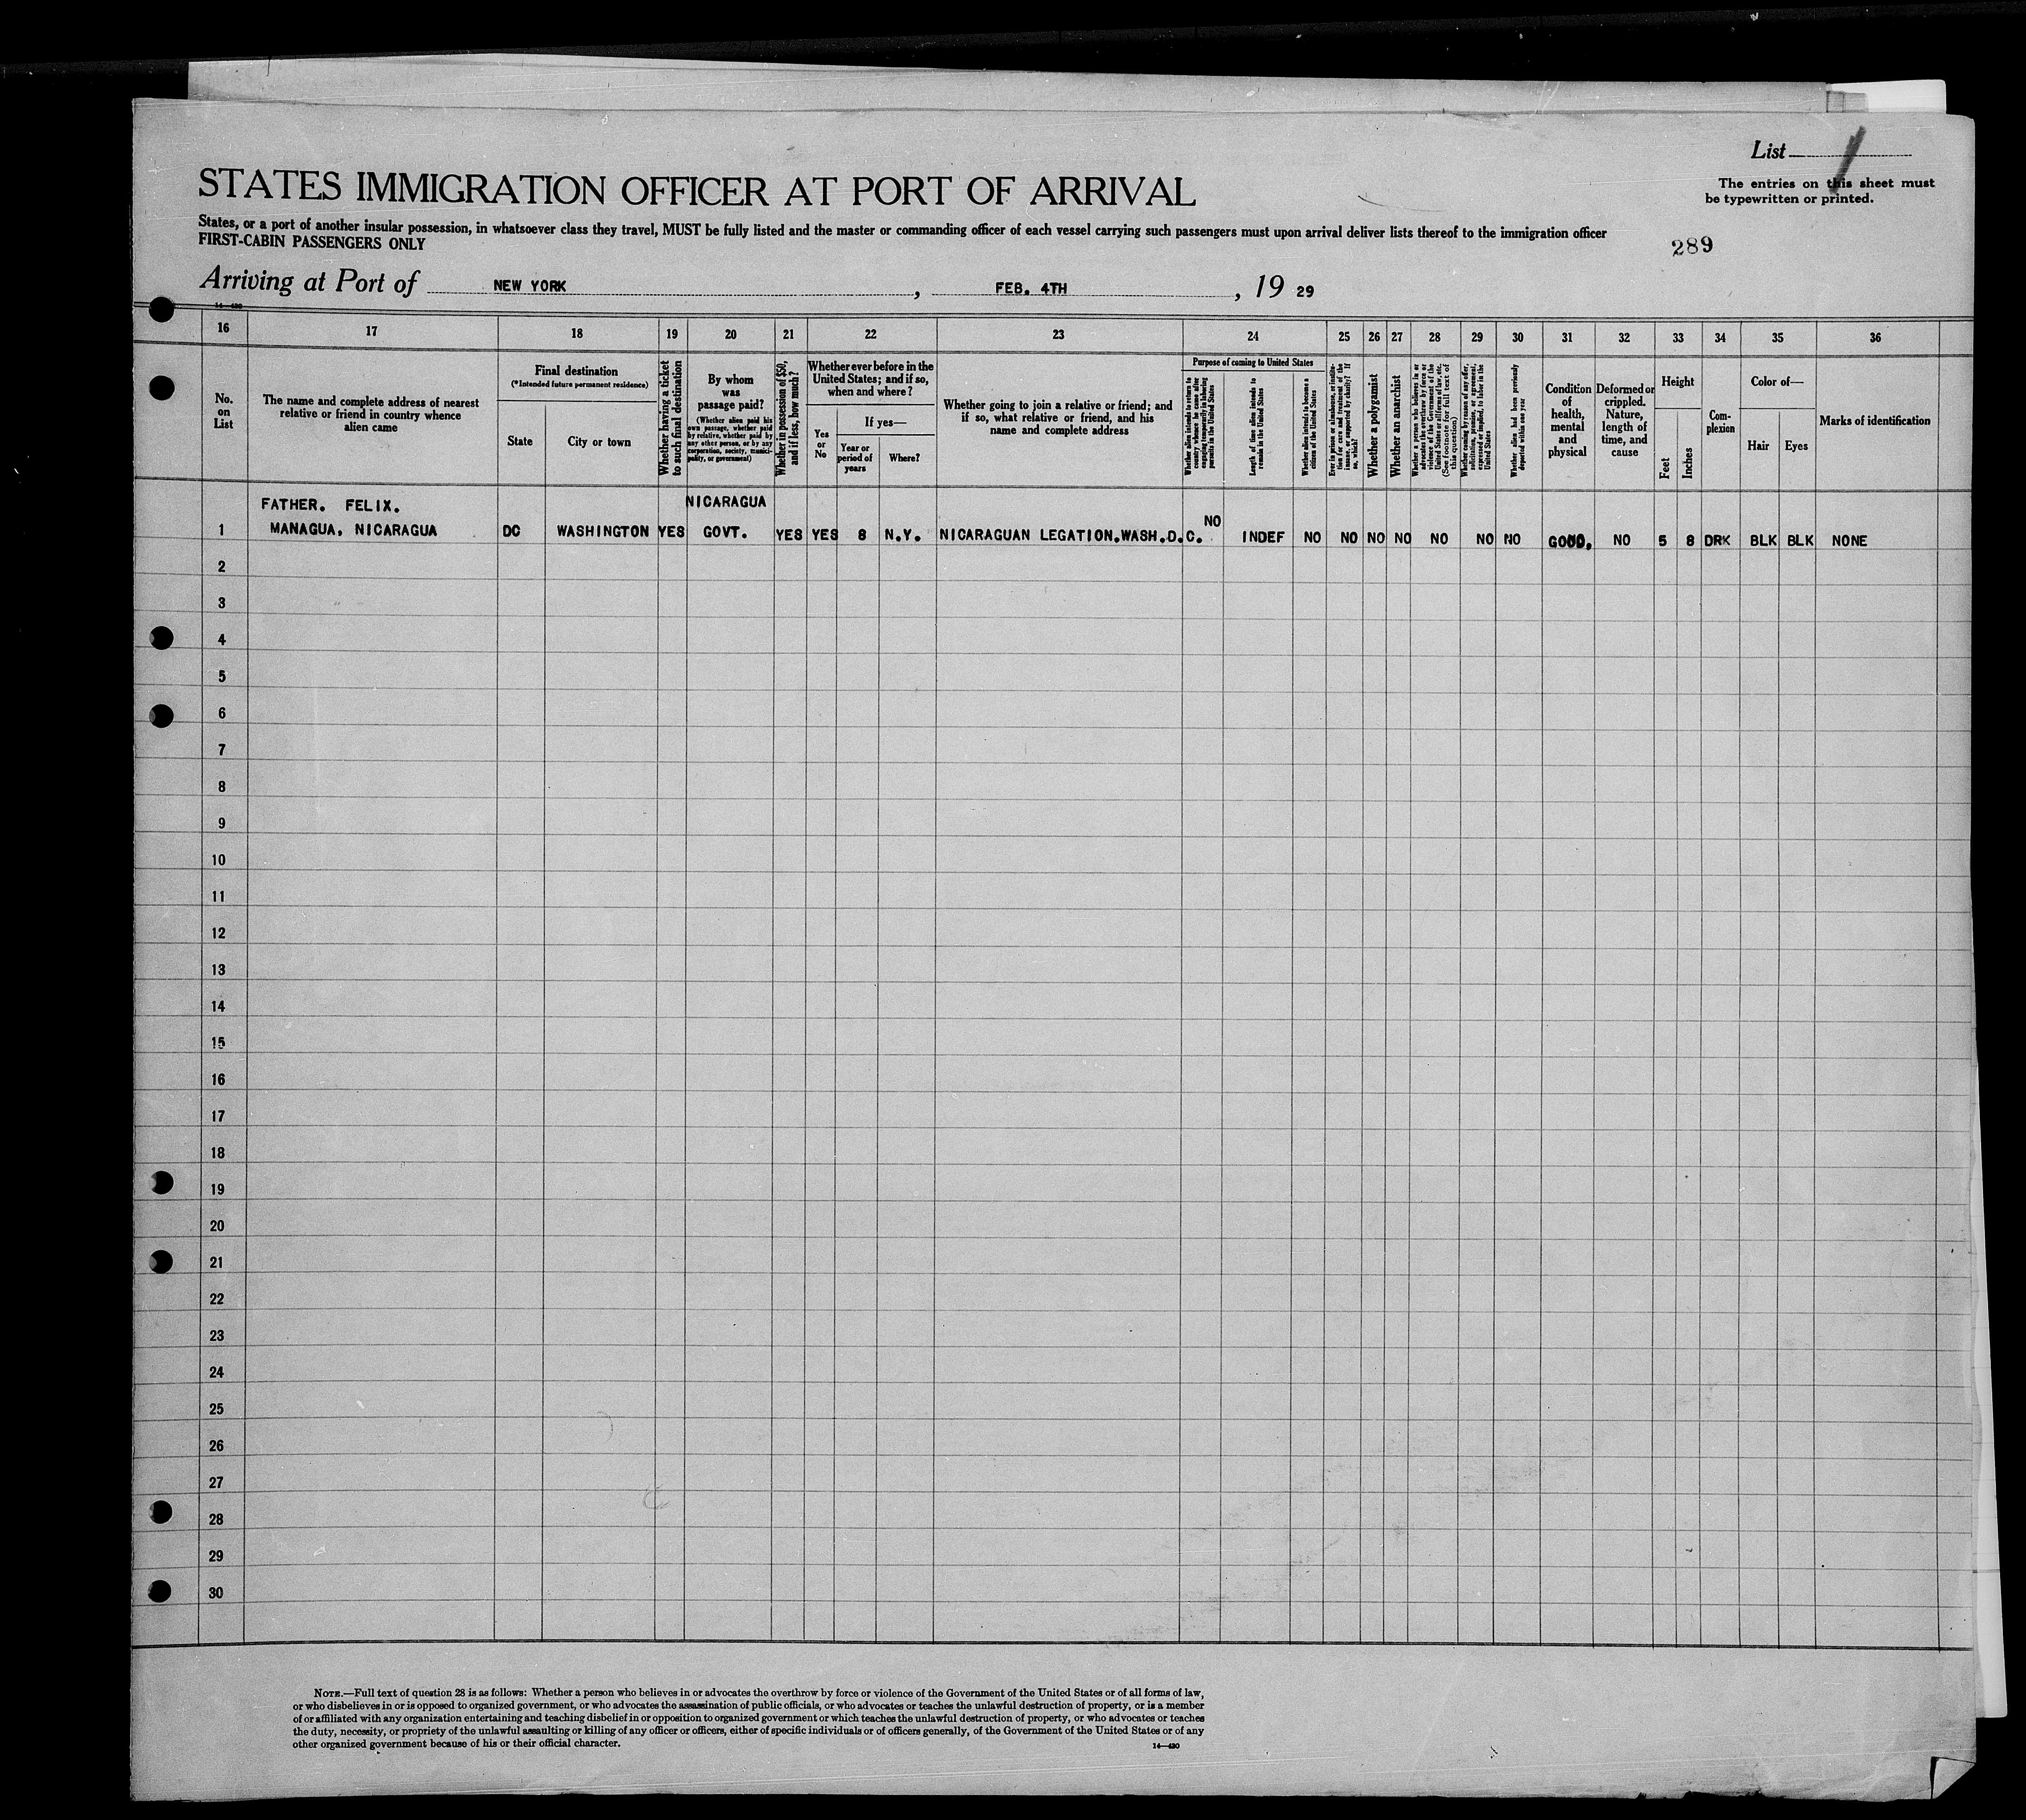 List 1
The entries on this sheet must
be typewritten or printed.
STATES IMMIGRATION OFFICER AT PORT OF ARRIVAL
States, or a port of another insular possession, in whatsoever class they travel, MUST be fully listed and the master or commanding officer of each vessel carrying such passengers must upon arrival deliver lists thereof to the immigration officer
FIRST-CABIN PASSENGERS ONLY
289
Arriving at Port of NEW YORK, FEB. 4TH, 19 29
14—430
16 17 18 19 20 21 22 23 24 25 26 27 28 29 30 31 32 33 34 35 36
No.
on
List
The name and complete address of nearest
relative or friend in country whence
alien came
Final destination
(*Intended future permanent residence)
State
City or town
Whether having a ticket
to such final destination
By whom
was
passage paid?
(Whether alien paid his
own passage, whether paid
by relative, whether paid by
any other person, or by any
corporation, society, munici-
pality, or government)
Whether in possession of $50,
and if less, how much?
Whether ever before in the
United States; and if so,
when and where?
Yes
or
No
If yes—
Year or
period of
years
Where?
Whether going to join a relative or friend; and
if so, what relative or friend, and his
name and complete address
Purpose of coming to United States
Whether alien intends to return to
country whence he came after
engaging temporarily in laboring
pursuits in the United States
Length of time alien intends to
remain in the United States
Whether alien intends to become a
citizen of the United States
Ever in prison or almshouse, or institu-
tion for care and treatment of the
insane, or supported by charity? If
so, which?
Whether a polygamist
Whether an anarchist
Whether a person who believes in or
advocates the overthrow by force or
violence of the Government of the
United States or all forms of law, etc.
(See footnote for full text of
this question)
Whether coming by reason of any offer,
solicitation, promise, or agreement,
expressed or implied, to labor in the
United States
Whether alien had been previously
deported within one year
Condition
of
health,
mental
and
physical
Deformed or
crippled.
Nature,
length of
time, and
cause
Height
Feet
Inches
Com-
plexion
Color of—
Hair
Eyes
Marks of identification
FATHER. FELIX. NICARAGUA
1 MANAGUA, NICARAGUA DC WASHINGTON YES GOVT. YES YES 8 N.Y. NICARAGUAN LEGATION.WASH.D.C. NO INDEF NO NO NO NO NO NO NO GOOD. NO 5 8 DRK BLK BLK NONE
2
3
4
5
6
7
8
9
10
11
12
13
14
15
16
17
18
19
20
21
22
23
24
25
26
27
28
29
30
NOTE.—Full text of question 28 is as follows: Whether a person who believes in or advocates the overthrow by force or violence of the Government of the United States or of all forms of law,
or who disbelieves in or is opposed to organized government, or who advocates the assassination of public officials, or who advocates or teaches the unlawful destruction of property, or is a member
of or affiliated with any organization entertaining and teaching disbelief in or opposition to organized government or which teaches the unlawful destruction of property, or who advocates or teaches
the duty, necessity, or propriety of the unlawful assaulting or killing of any officer or officers, either of specific individuals or of officers generally, of the Government of the United States or of any
other organized government because of his or their official character.
14—430